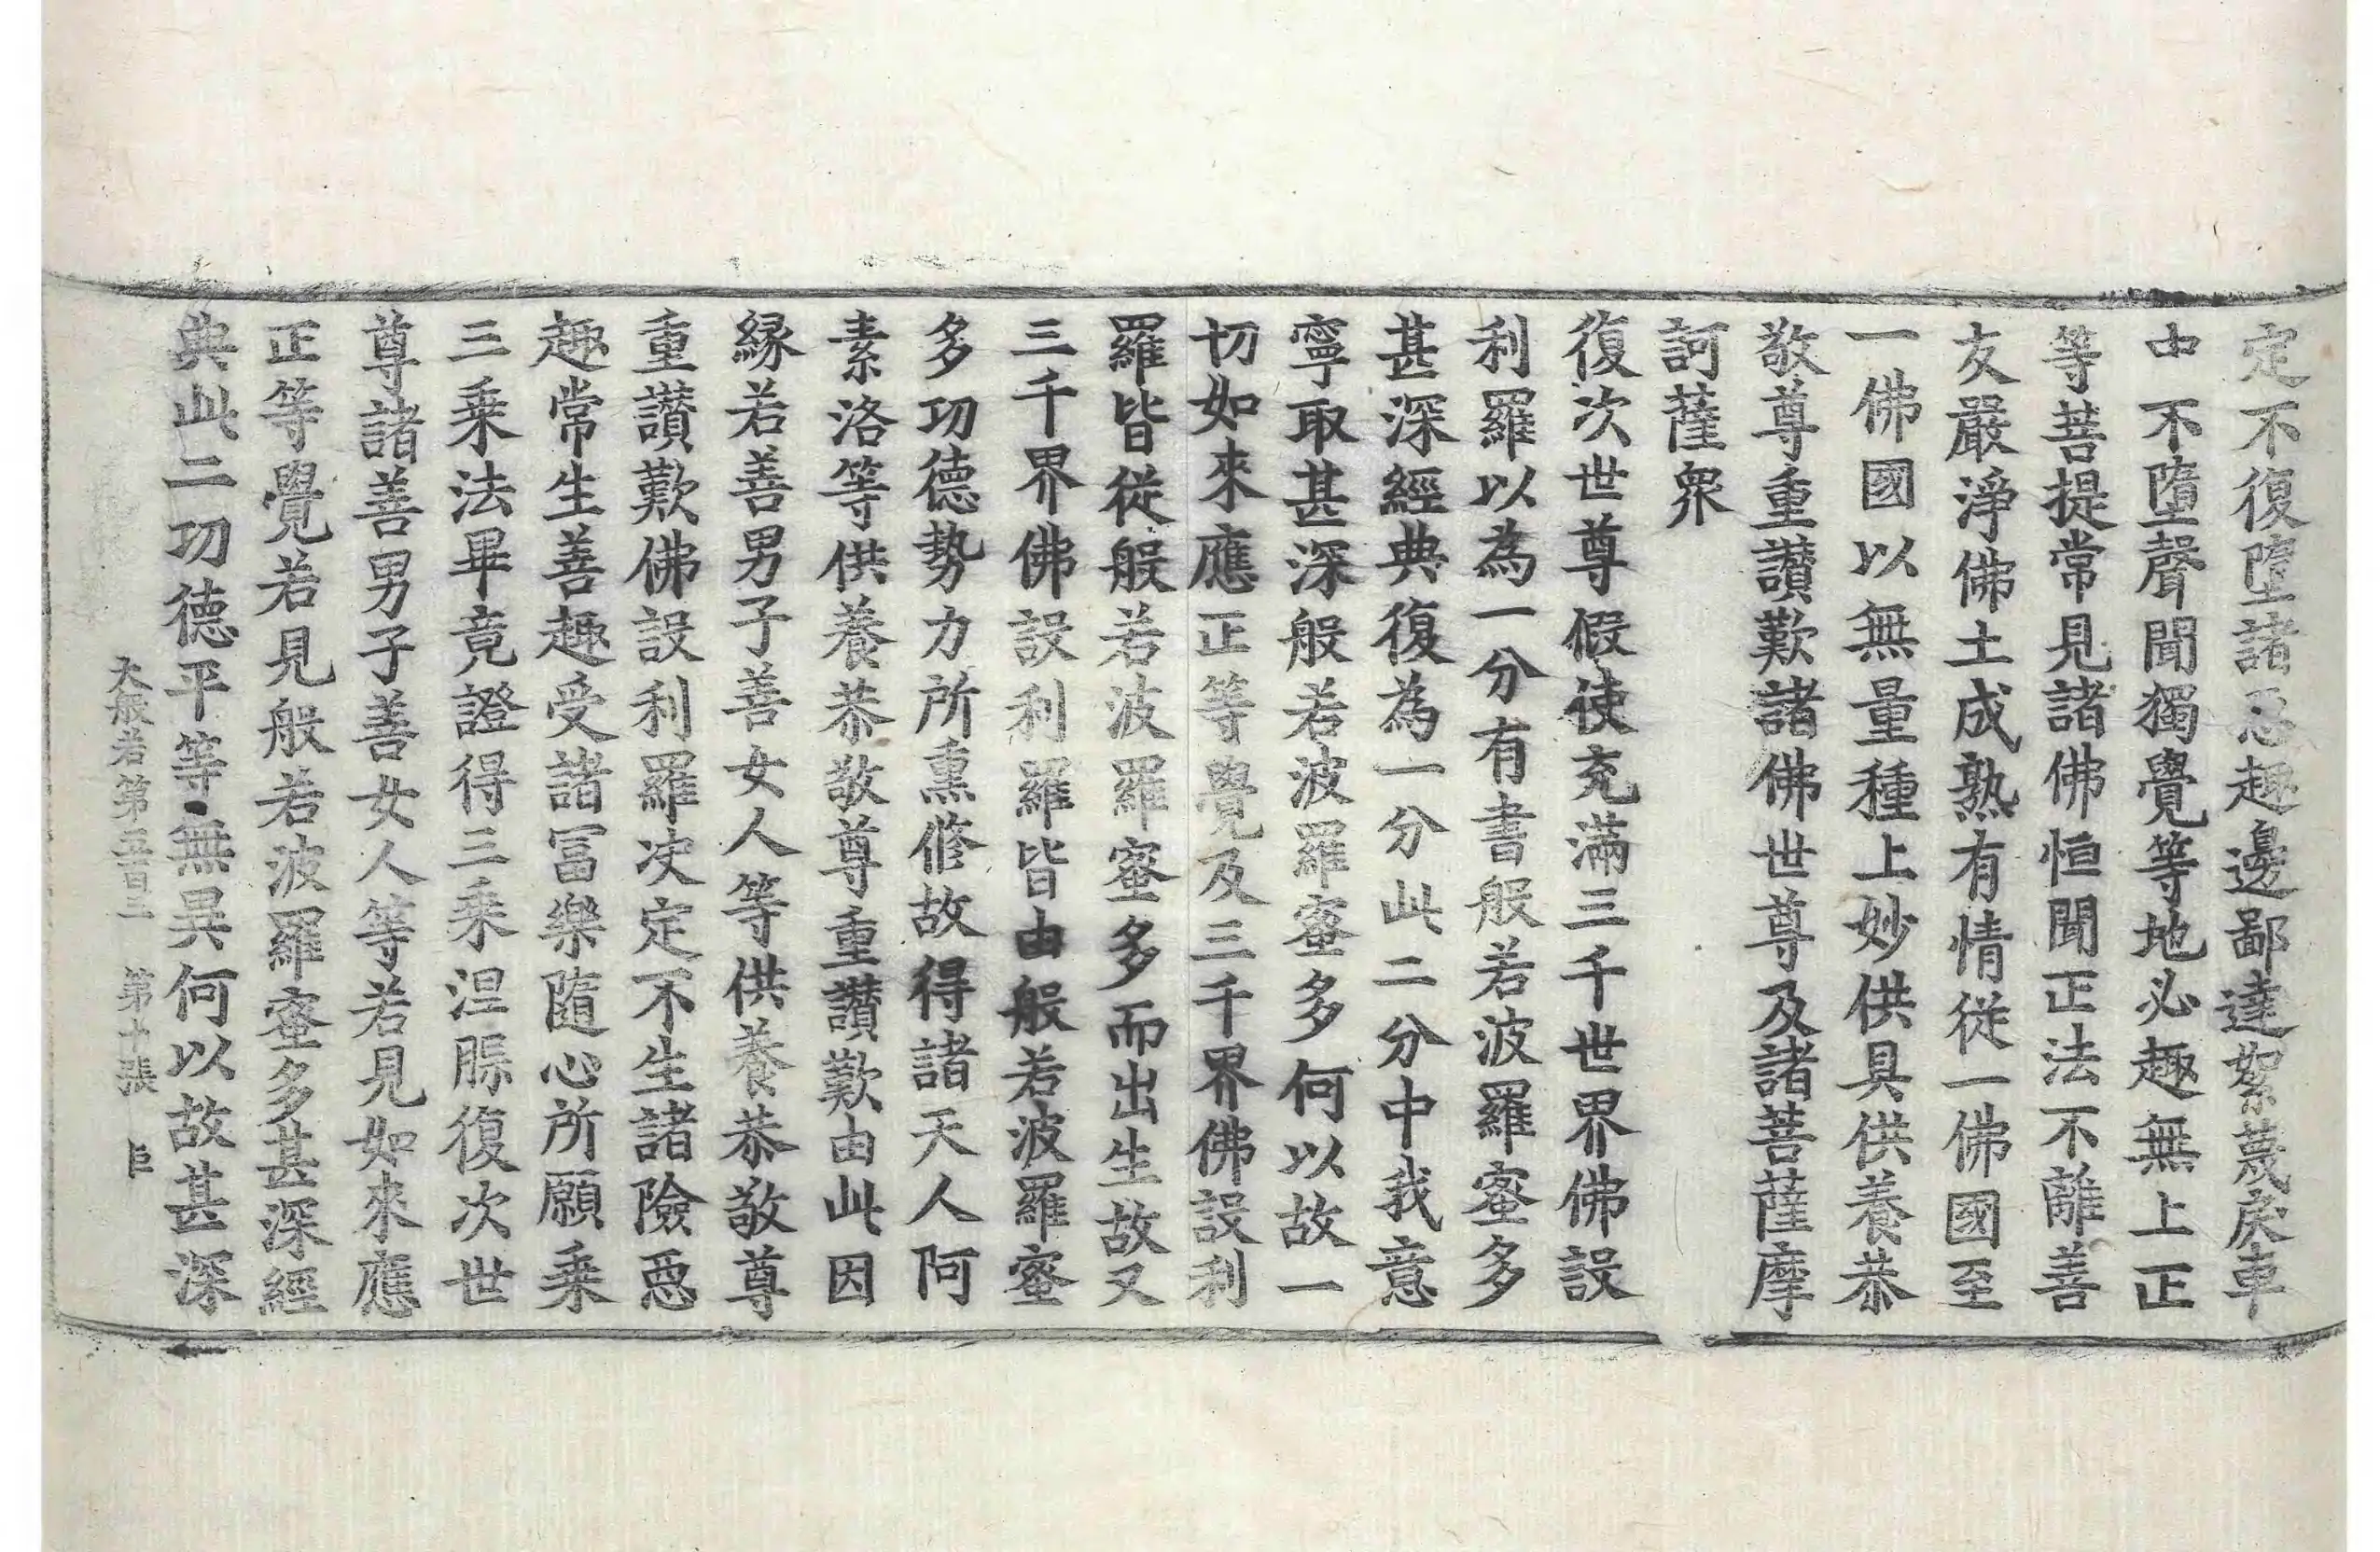 定不復墮諸惡趣邊鄙達絮蔑戾車
中不墮聲聞獨覺等地必趣無上正
等菩提常見諸佛恒聞正法不離善
友嚴淨佛土成熟有情從一佛國至
一佛國以無量種上妙供具供養恭
敬尊重讚歎諸佛世尊及諸菩薩摩
訶薩衆
復次世尊假使充滿三千世界佛設
利羅以為一分有書般若波羅蜜多
甚深經典復為一分此二分中我意
寧取甚深般若波羅蜜多何以故一
切如來應正等覺及三千界佛設利
羅皆從般若波羅蜜多而出生故又
三千界佛設利羅皆由般若波羅蜜
多功德勢力所熏修故得諸天人阿
素洛等供養恭敬尊重讚歎由此因
緣若善男子善女人等供養恭敬尊
重讚歎佛設利羅決定不生諸險惡
趣常生善趣受諸冨樂隨心所願乗
三乗法畢竟證得三乗涅膥復次世
尊諸善男子善女人等若見如來應
正等覺若見般若波羅蜜多甚深經
典此二功德平等無異何以故甚深
大般若第五百三 第十張 臣